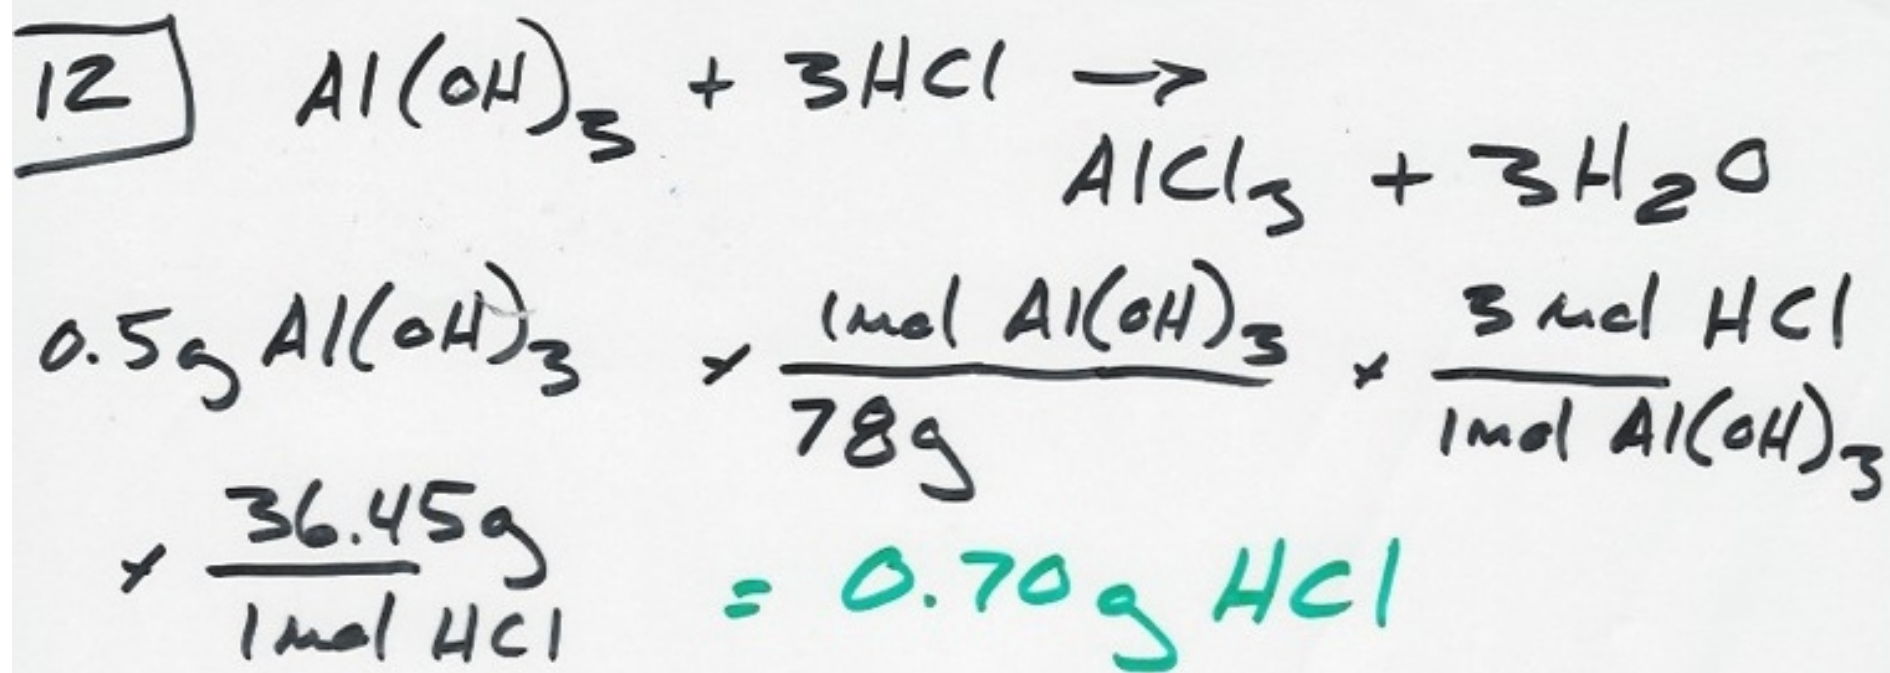 12 Al(OH)₃ + 3HCl →
AlCl₃ + 3H₂O
0.5g Al(OH)₃ × 1mol Al(OH)₃ / 78g × 3 mol HCl / 1mol Al(OH)₃
× 36.45g / 1mol HCl = 0.70g HCl